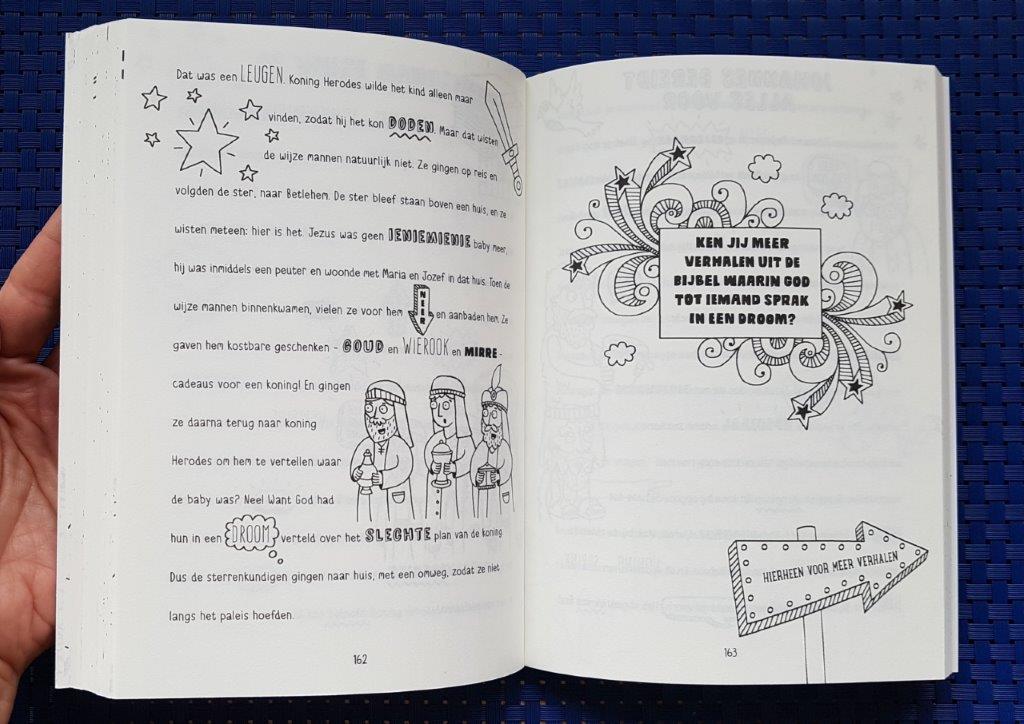 Dat was een LEUGEN. Koning Herodes wilde het kind alleen maar
vinden, zodat hij het kon DODEN. Maar dat wisten
de wijze mannen natuurlijk niet. Ze gingen op reis en
volgden de ster, naar Betlehem. De ster bleef staan boven een huis, en ze
wisten meteen: hier is het. Jezus was geen IENIEMIENIE baby meer,
hij was inmiddels een peuter en woonde met Maria en Jozef in dat huis. Toen de
wijze mannen binnenkwamen, vielen ze voor hem NEER en aanbaden hem. Ze
gaven hem kostbare geschenken – GOUD en WIEROOK en MIRRE –
cadeaus voor een koning! En gingen
ze daarna terug naar koning
Herodes om hem te vertellen waar
de baby was? Nee! Want God had
hun in een DROOM verteld over het SLECHTE plan van de koning.
Dus de sterrenkundigen gingen naar huis, met een omweg, zodat ze niet
langs het paleis hoefden.
162
KEN JIJ MEER
VERHALEN UIT DE
BIJBEL WAARIN GOD
TOT IEMAND SPRAK
IN EEN DROOM?
HIERHEEN VOOR MEER VERHALEN
163